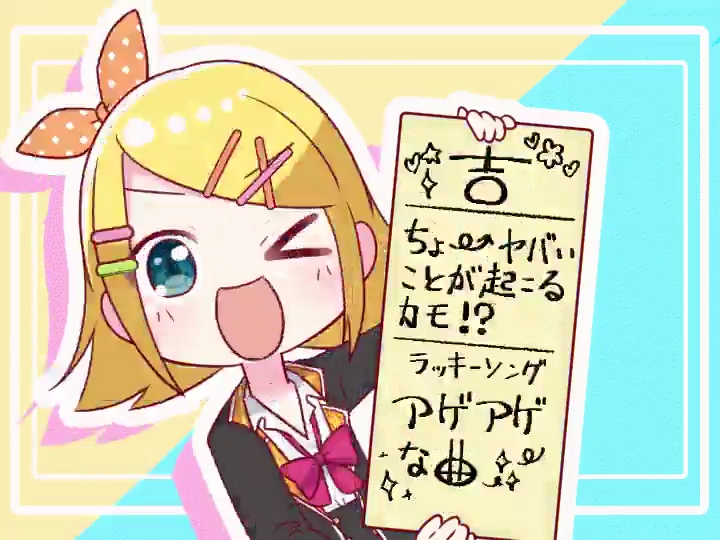 吉
ちょーヤバい
ことが起こる
カモ!?
ラッキーソング
アゲアゲ
な曲